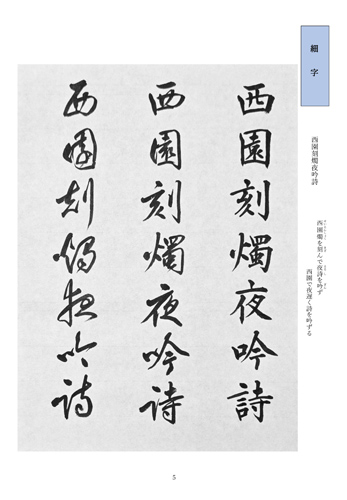 細字
西園刻燭夜吟詩
西園燭を刻んで夜詩を吟ず
西園で夜遅く詩を吟ずる
西園刻燭夜吟詩
西園刻燭夜吟詩
西園刻燭夜吟詩
5